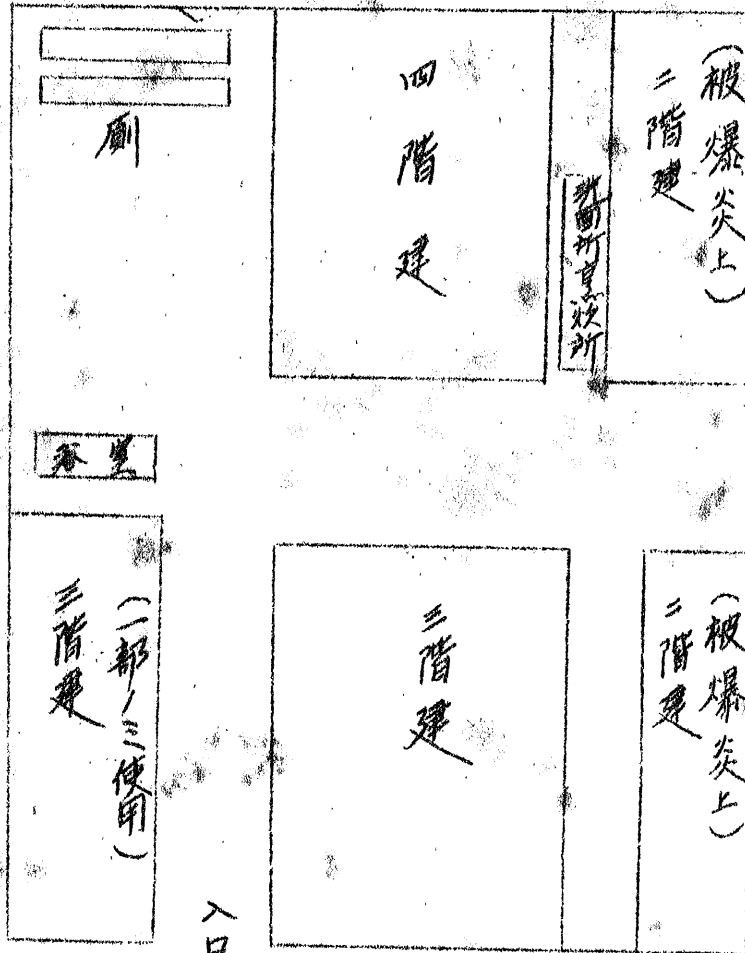 (被爆炎上)
二階建
四階建
厠
浴室
(被爆炎上)
二階建
三階建
(一部ノミ使用)
三階建
入口